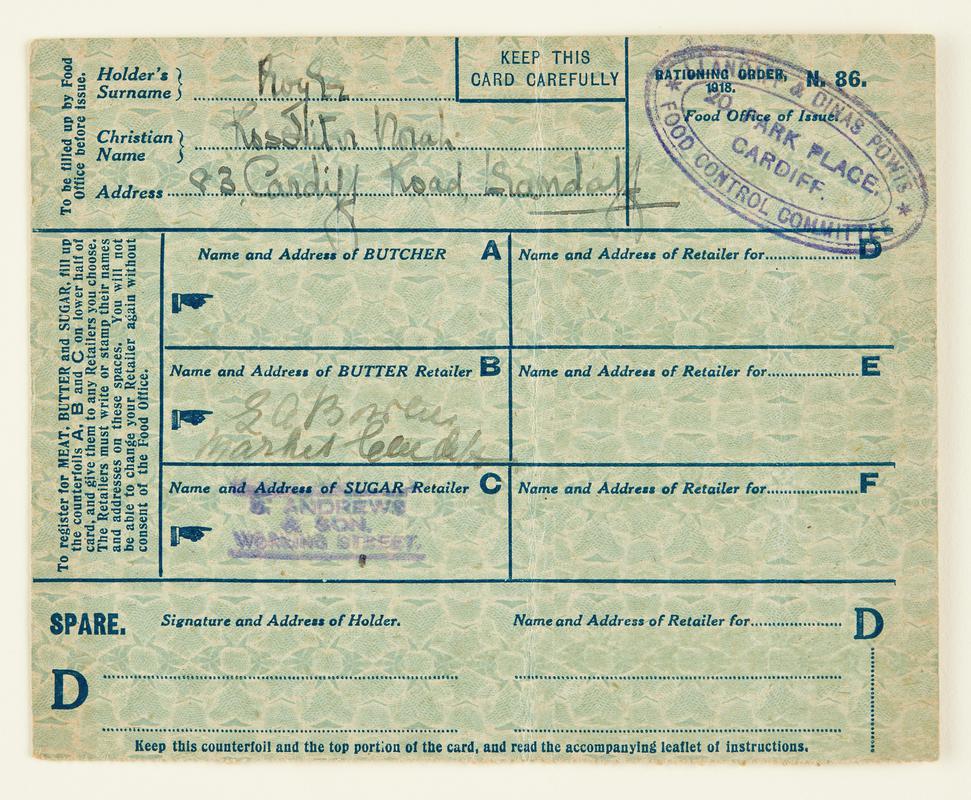 To be filled up by Food
Office before issue.
Holder's
Surname
Christian
Name
Norah
Address
83 Cardiff Road Llandaff
KEEP THIS
CARD CAREFULLY
RATIONING ORDER,
1918.
N. 86.
Food Office of Issue.
LLANDAFF & DINAS POWIS
20, PARK PLACE,
CARDIFF.
* FOOD CONTROL COMMITTEE *
To register for MEAT, BUTTER and SUGAR, fill up
the counterfoils A, B and C on lower half of
card, and give them to any Retailers you choose.
The Retailers must write or stamp their names
and addresses on these spaces. You will not
be able to change your Retailer again without
consent of the Food Office.
Name and Address of BUTCHER A
Name and Address of BUTTER Retailer B
Market
Name and Address of SUGAR Retailer C
S. ANDREWS
& SON,
WORKING STREET.
Name and Address of Retailer for....................D
Name and Address of Retailer for....................E
Name and Address of Retailer for....................F
SPARE.
D
Signature and Address of Holder.
Name and Address of Retailer for....................
D
Keep this counterfoil and the top portion of the card, and read the accompanying leaflet of instructions.